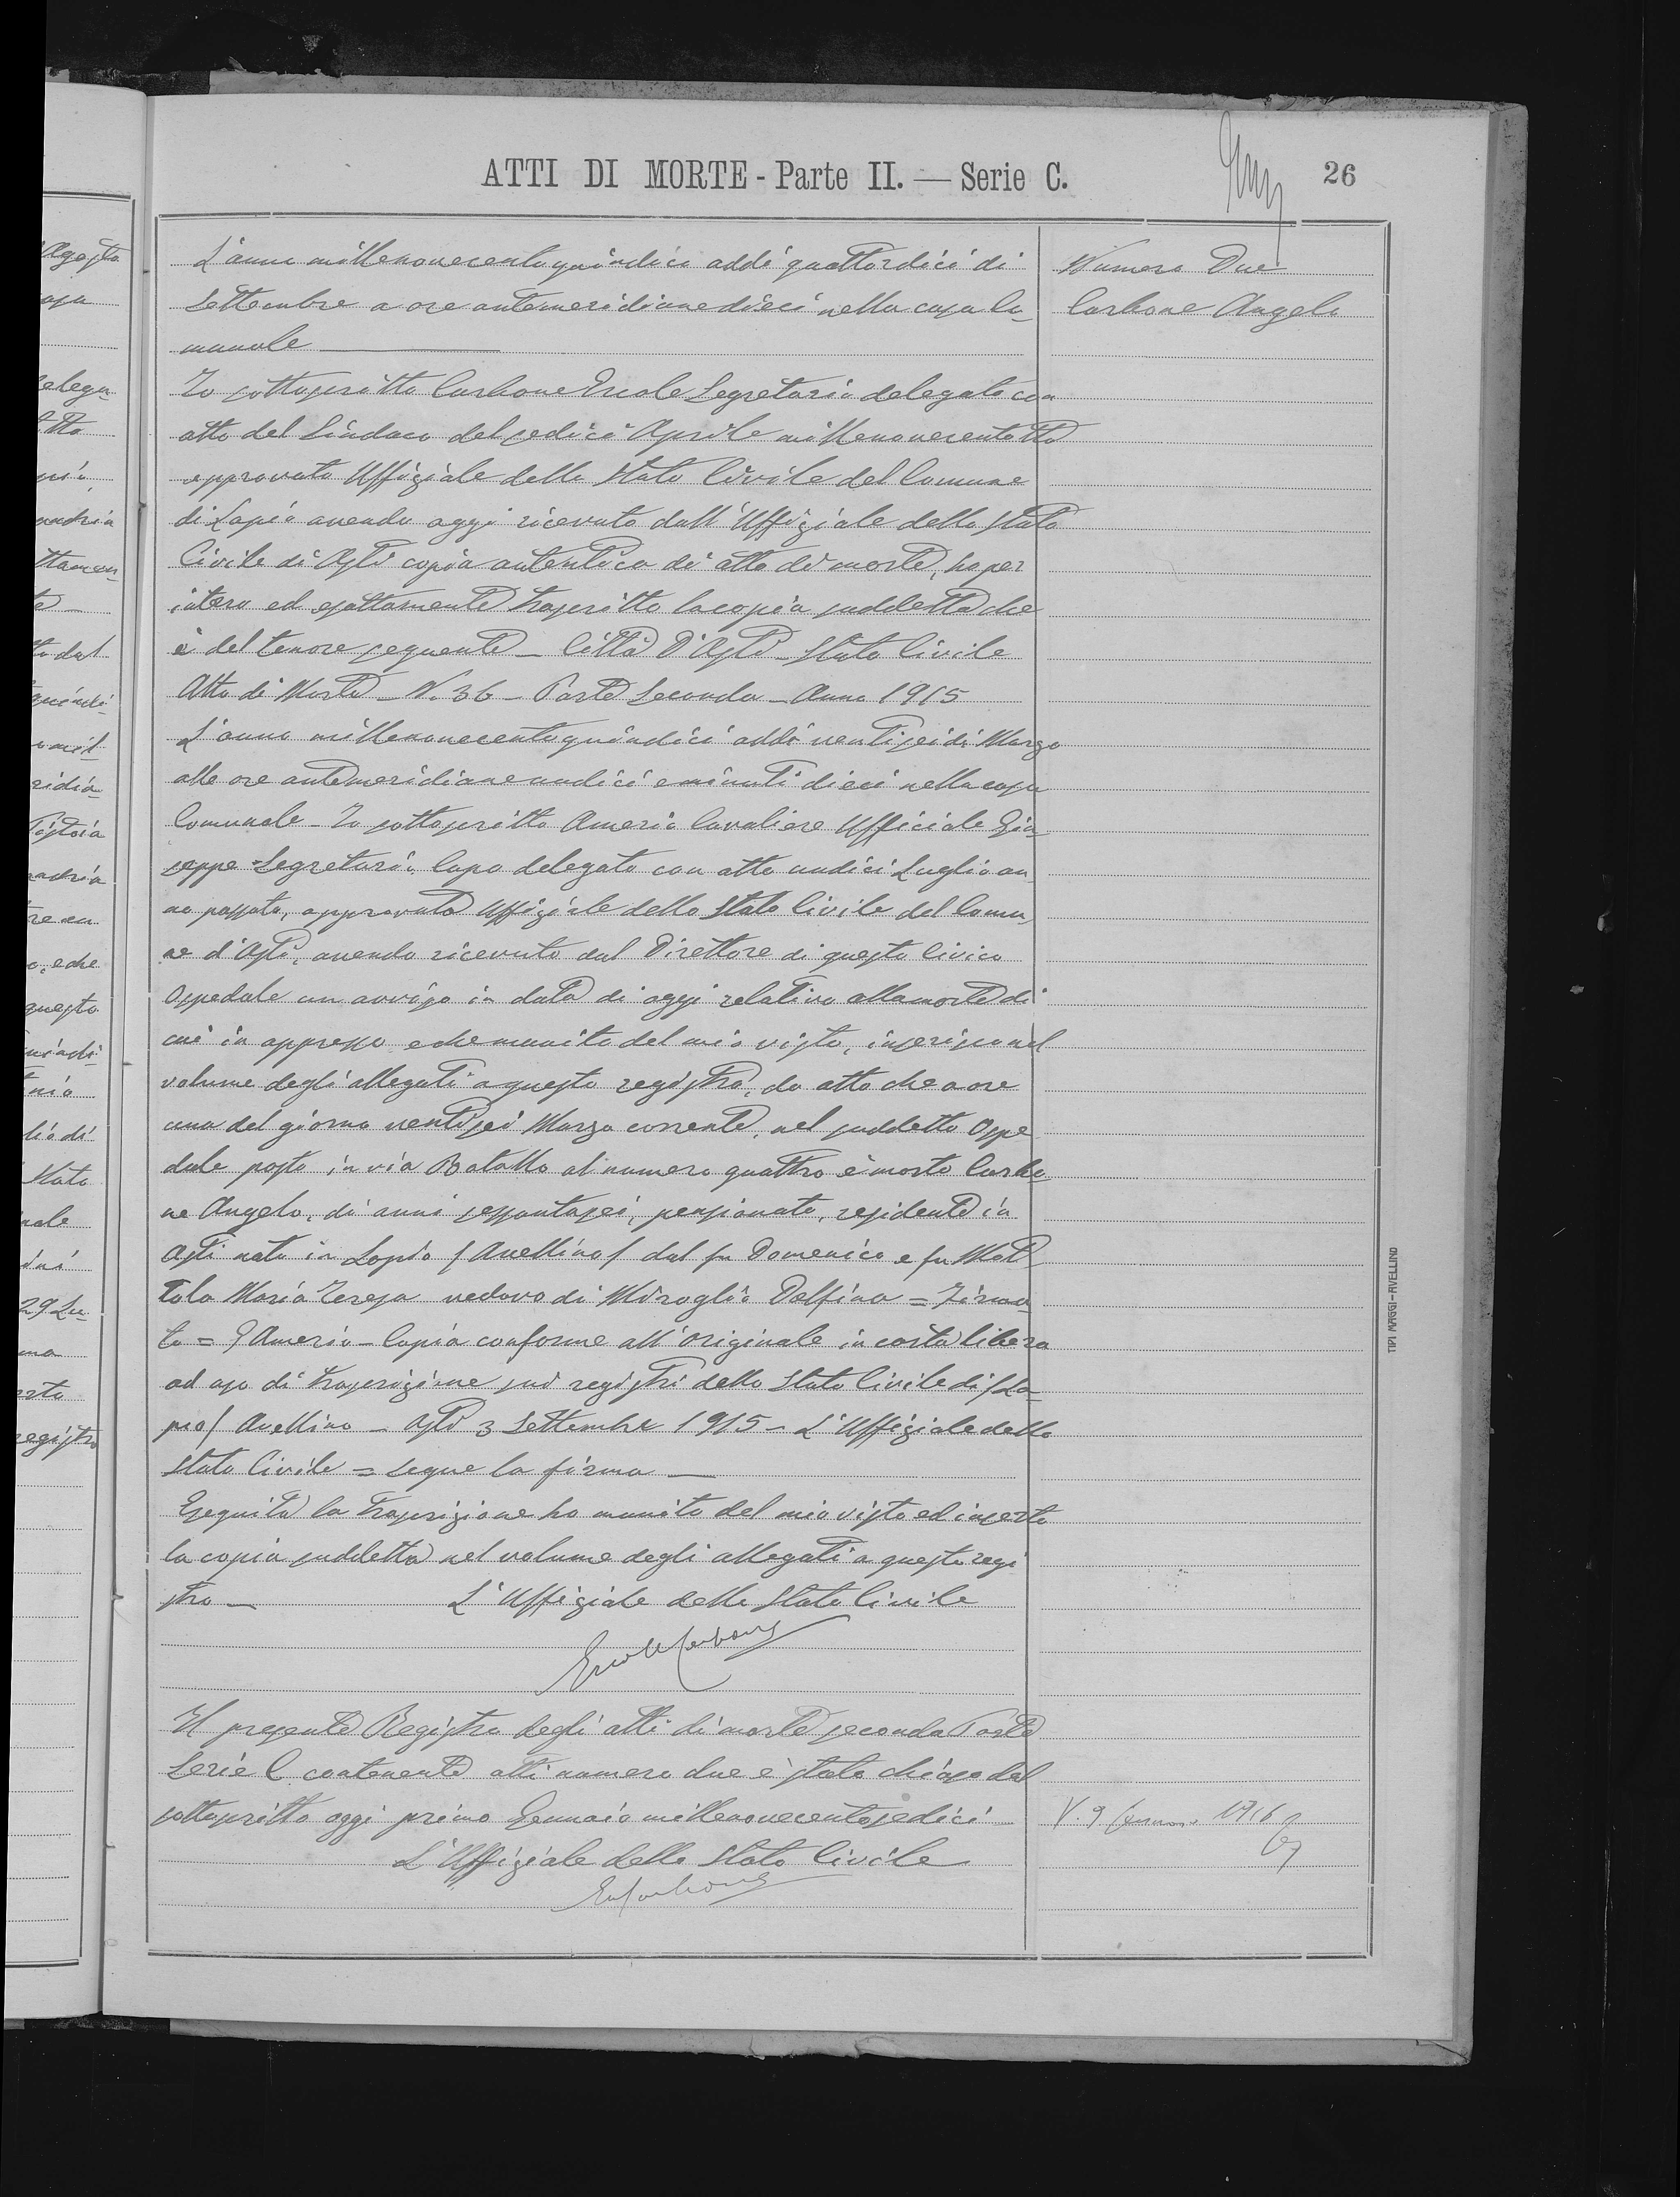 ATTI DI MORTE - Parte II. — Serie C.
26
Numero Due
Carbone Angelo
L'anno millenovecentoquindici addi quattordici di
Settembre a ore antemeridiane dieci nella casa Co-
munale
Io sottoscritto Carbone Ercole Segretario delegato con
atto del Sindaco del sedici Aprile millenovecentotto
approvato Uffiziale dello Stato Civile del Comune
di Lapio avendo oggi ricevuto dall'Uffiziale dello Stato
Civile di Asti copia autentica di atto di morte, ho per
intero ed esattamente trascritto la copia suddetta che
è del tenore seguente - Città D'Asti - Stato Civile
Atto di Morte - N. 36 - Parte Seconda - Anno 1915
L'anno millenovecentoquindici addi ventisei di Marzo
alle ore antemeridiane undici e minuti dieci nella casa
Comunale - Io sottoscritto Amerio Cavaliere Ufficiale Giu-
seppe Segretario Capo delegato con atto undici Luglio an-
no passato, approvato Uffiziale dello Stato Civile del Comu-
ne d'Asti, avendo ricevuto dal Direttore di questo Civico
Ospedale un avviso in data di oggi relativo alla morte di
cui in appresso e che munito del mio visto, inserisco nel
volume degli allegati a questo registro, do atto che a ore
una del giorno ventisei Marzo corrente, nel suddetto Ospe
dale posto in via Botallo al numero quattro è morto Carbo
ne Angelo, di anni sessantasei, pensionato, residente in
Asti nato in Lapio / Avellino / dal fu Domenico e fu Mot
tola Maria Teresa vedovo di Miroglio Delfina = Firma
to = G Amerio - Copia conforme all'originale in carta libera
ad uso di trascrizione sui registri dello Stato Civile di / La-
pio / Avellino - Asti 3 Settembre 1915 - L'Uffiziale dello
Stato Civile = segue la firma
Eseguita la trascrizione ho munito del mio visto ed inserto
la copia suddetta nel volume degli allegati a questo regi
stro - L'Uffiziale dello Stato Civile
Ercole Carbone
Il presente Registro degli atti di morte seconda Parte
Serie C contenente atti numero due è stato chiuso dal
sottoscritto oggi primo Gennaio millenovecentosedici
L'Uffiziale dello Stato Civile
V. 9 Gennaio 1916
TIPI MAGGI-AVELLINO